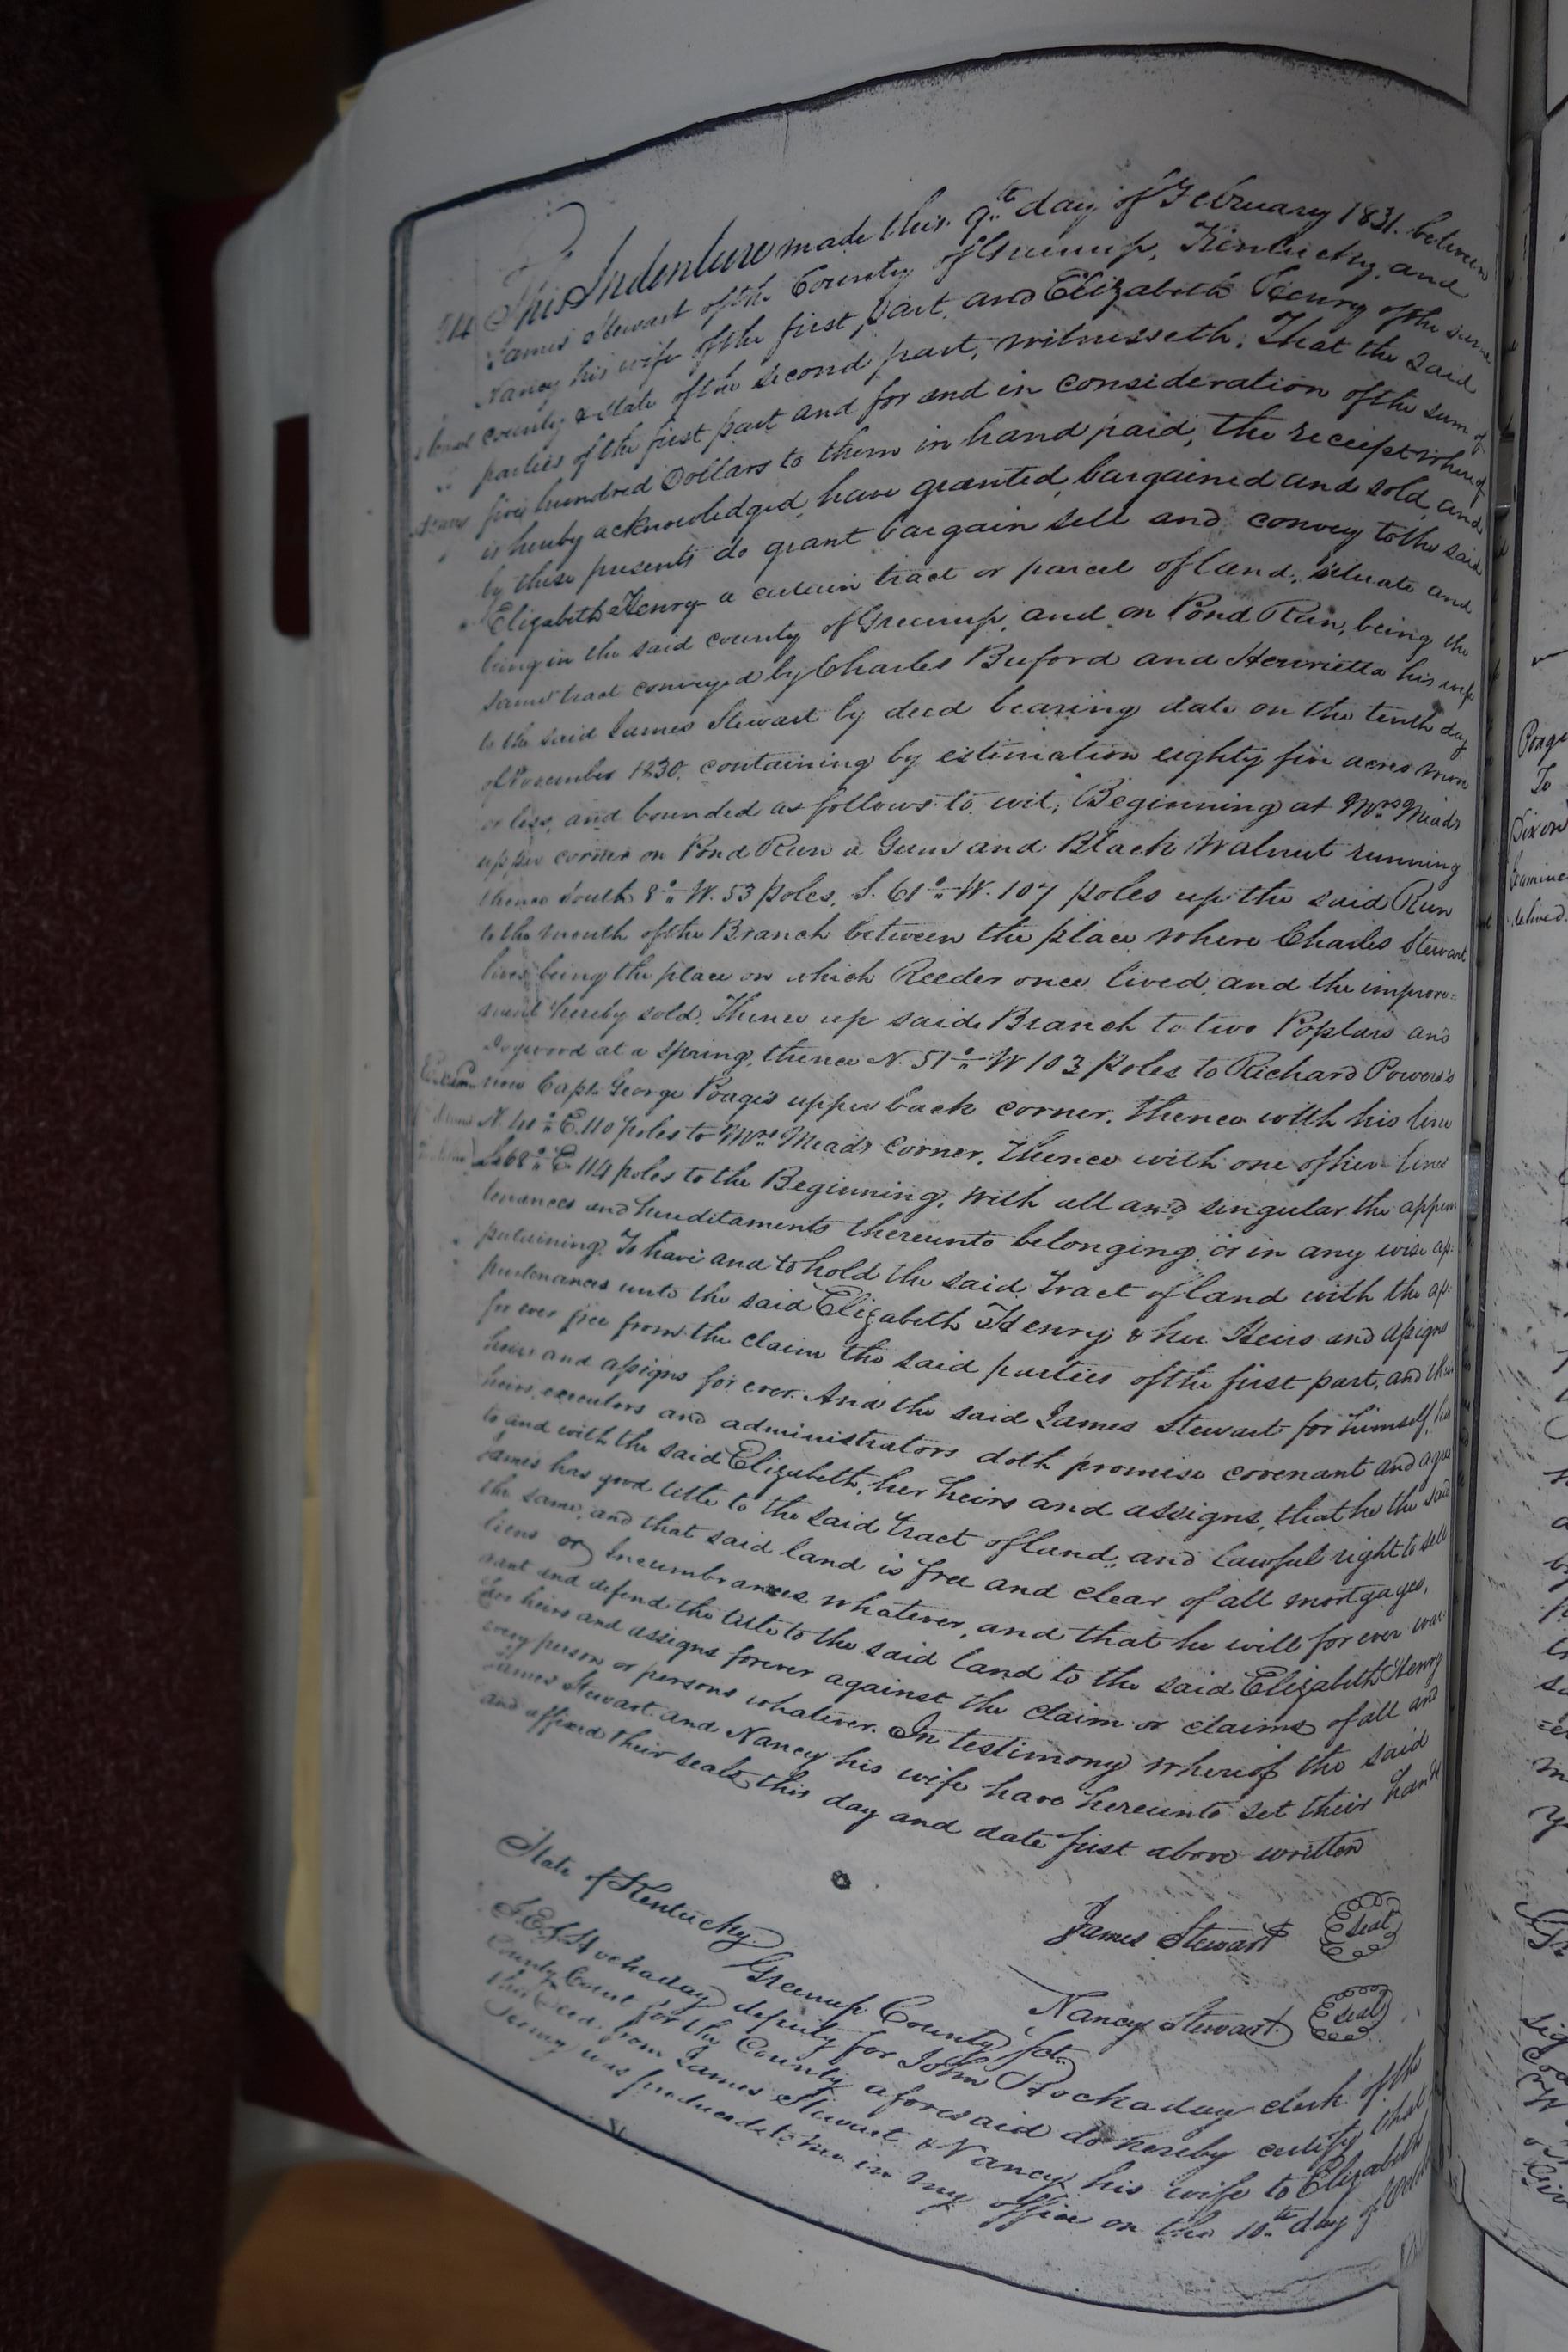 This Indenture made this 9th day of February 1831. between
James Stewart of the County of Greenup, Kentucky, and
Nancy his wife of the first part, and Elizabeth Henry of the same
county & state of the second part, witnesseth: That the said
parties of the first part and for and in consideration of the sum of
five hundred Dollars to them in hand paid, the receipt where of
is hereby acknowledged, have granted, bargained and sold, and
by these presents do grant bargain sell and convey to the said
Elizabeth Henry a certain tract or parcel of land, situate and
being in the said county of Greenup, and on Pond Run, being the
same tract conveyed by Charles Buford and Henrietta his wife
to the said James Stewart by deed bearing date on the tenth day
of November 1830. containing by estimation eighty five acres more
or less, and bounded as follows to wit; Beginning at Mrs. Meads
upper corner on Pond Run a Gum and Black Walnut running
thence South 8° W. 53 poles, S. 61° W. 107 poles up the said Run
to the mouth of the Branch between the place where Charles Stewart
lives being the place on which Reeder once lived, and the improve=
ment hereby sold. Thence up said Branch to two Poplars and
Dogwood at a spring, thence N. 51° W 103 poles to Richard Powers's
now Capt. George Poage's upper back corner. thence with his line
N. 40° E. 110 poles to Mrs. Meads corner. thence with one of her lines
S. 68° E. 114 poles to the Beginning. With all and singular the appur
tenances and hereditaments thereunto belonging or in any wise ap:
pertaining. To have and to hold the said tract of land with the ap:
purtenances unto the said Elizabeth Henry & her Heirs and assigns
for ever free from the claim the said parties of the first part, and their
heirs and assigns for ever. And the said James Stewart for himself, his
heirs, executors and administrators doth promise covenant and agree
to and with the said Elizabeth, her heirs and assigns, that he the said
James has good title to the said tract of land, and lawful right to sell
the same, and that said land is free and clear of all mortgages,
liens or Incumbrances whatever, and that he will for ever war
rant and defend the title to the said land to the said Elizabeth Henry
her heirs and assigns forever against the claim or claims of all and
every person or persons whatever. In testimony whereof the said
James Stewart and Nancy his wife have hereunto set their hands
and affixed their seals this day and date first above written
James Stewart Seal
Nancy Stewart Seal
State of Kentucky
Greenup County Sct.
Hockaday deputy for John Hockaday clerk of the
County Court for the County aforesaid do hereby certify that
this Deed from James Stewart & Nancy his wife to Elizabeth
Henry was produced to me in my office on the 10th day of
Poage
To
Dixon